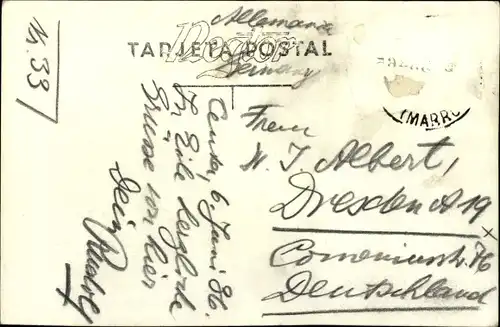 Allemania
TARJETA POSTAL
Germany
(MARRU
N. 33
Ceuta, 6. Juni 36.
In Eile herzliche
Grüsse von hier
Dein Rudolf
Herrn
J. Albert,
Dresden A 19
Comeniusstr. 76
Deutschland